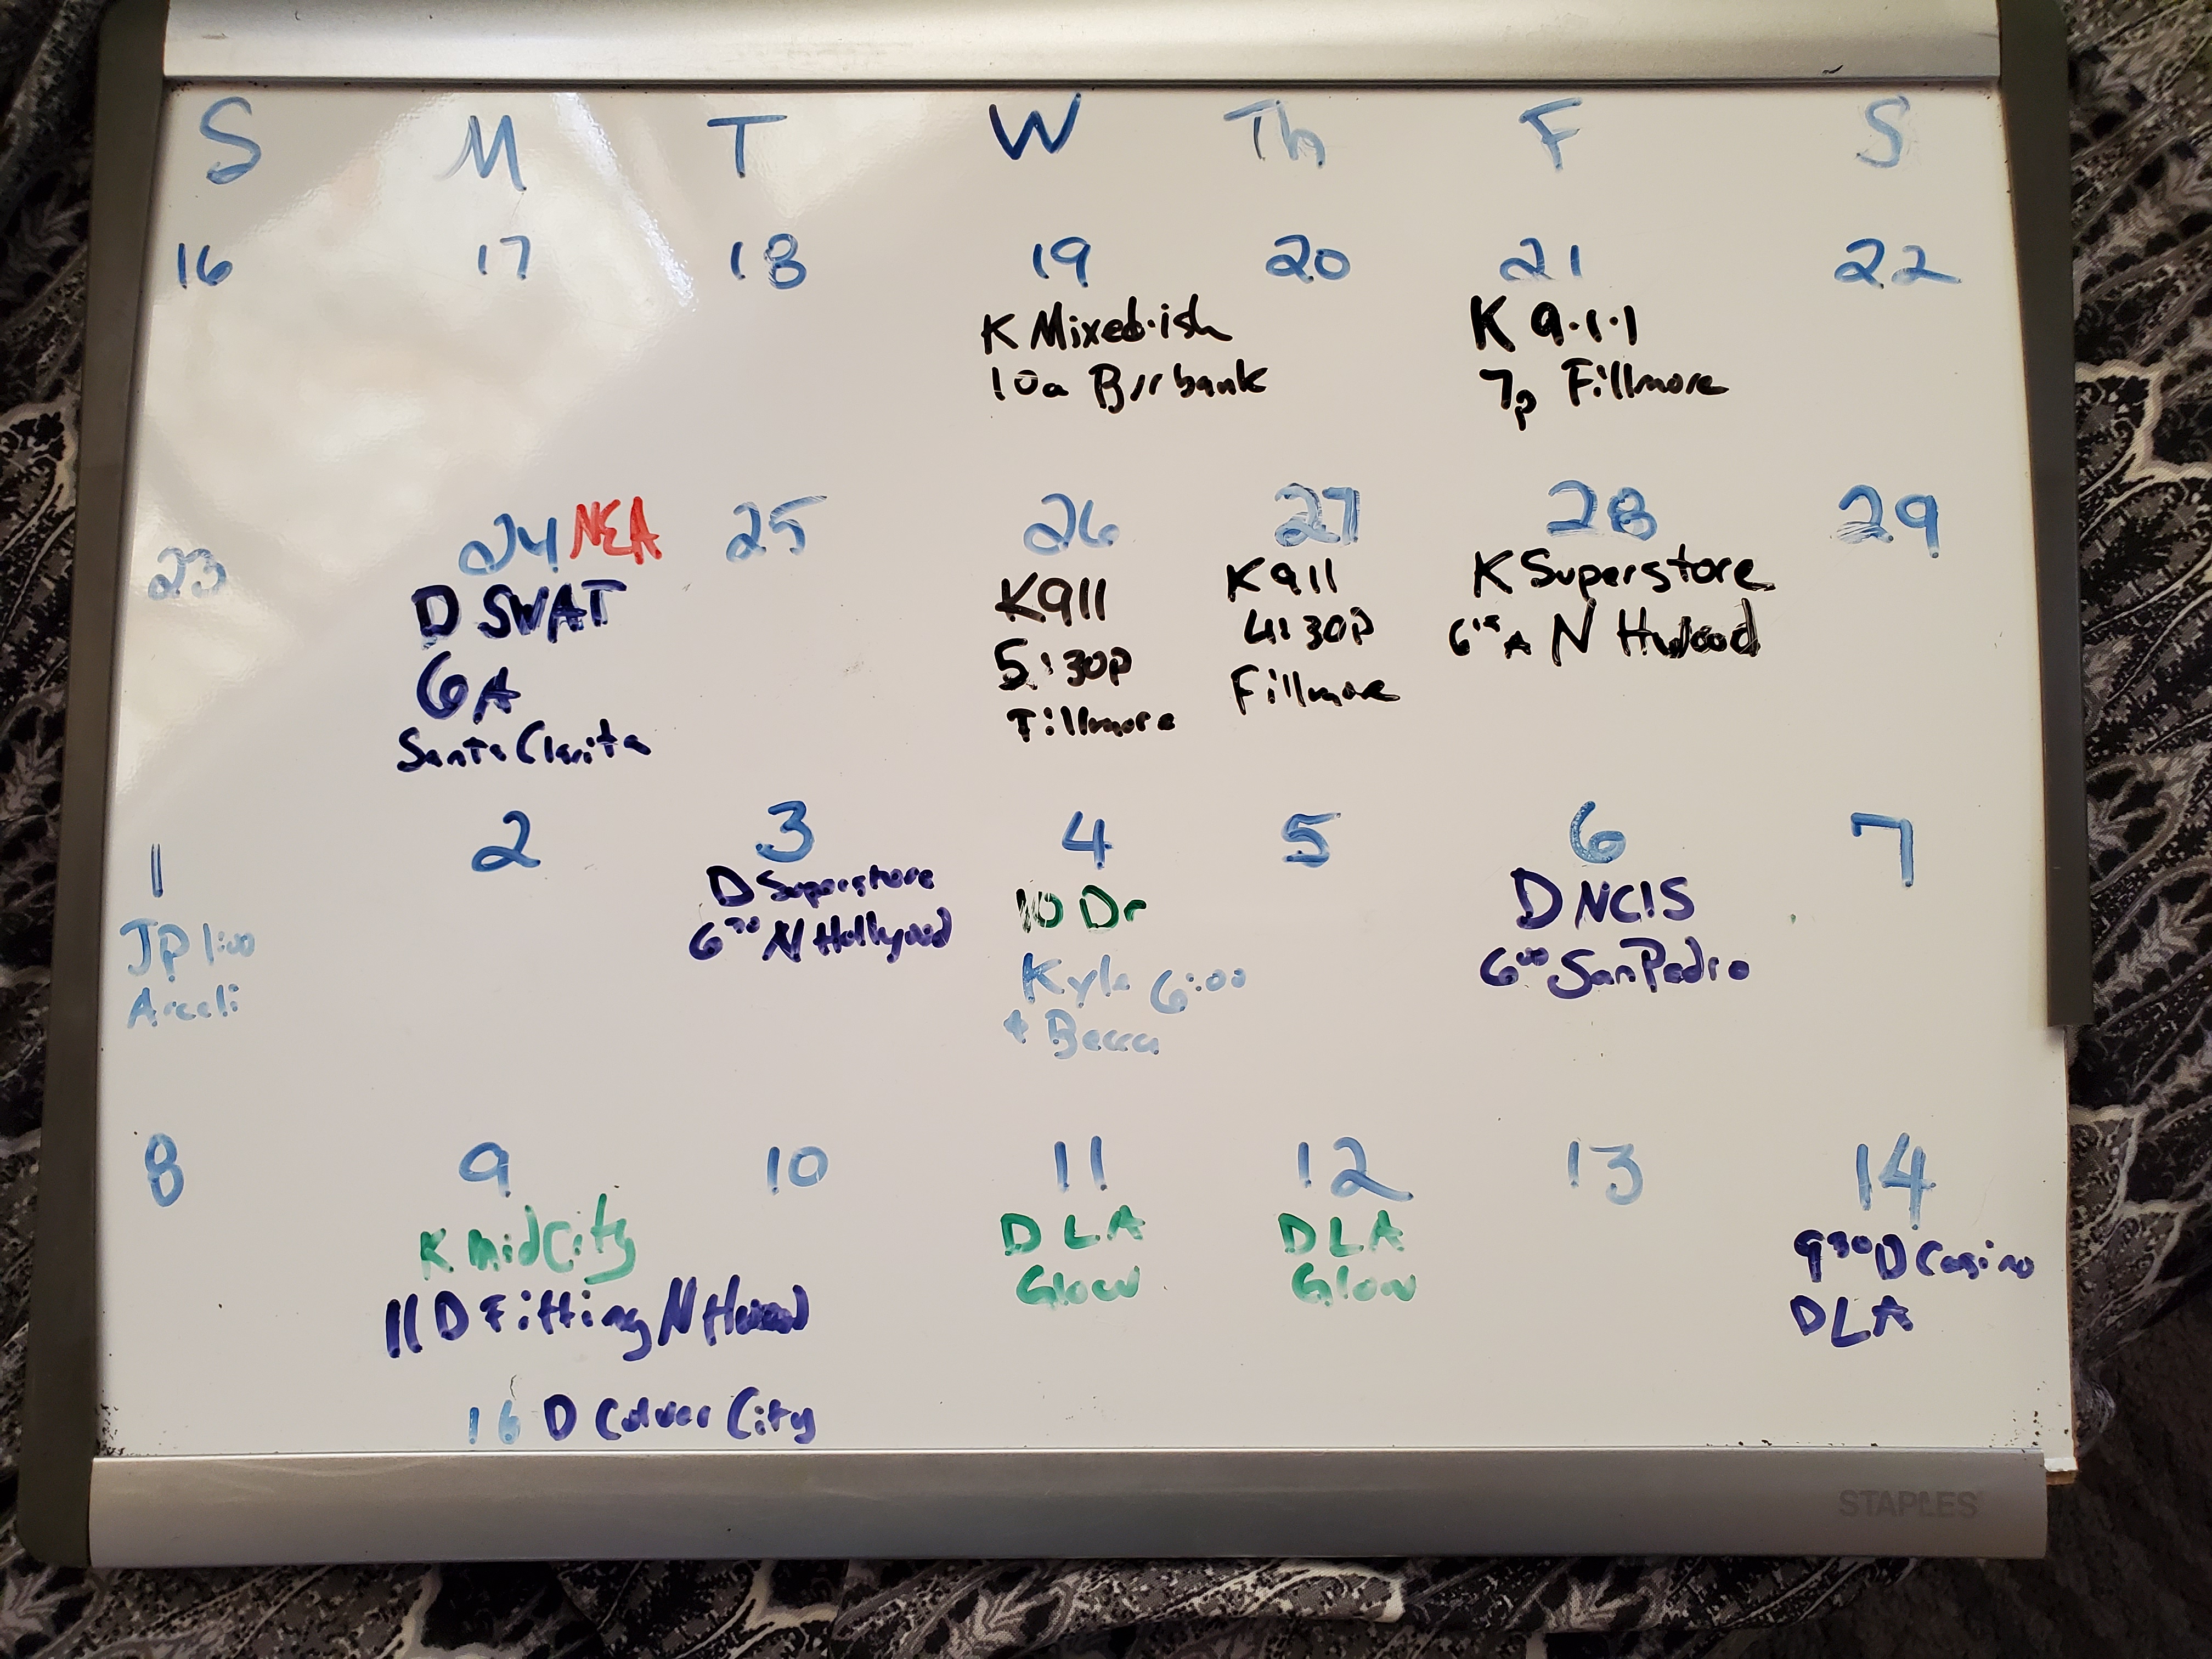 S M T W Th F S
16 17 18 19 20 21 22
K Mixed·ish
10a Burbank
K 9·1·1
7p Fillmore
23 24 NEA 25 26 27 28 29
D SWAT
6A
Santa Clarita
K911
5:30p
Fillmore
K911
4:30p
Fillmore
K Superstore
6 15 A N Hwood
1 2 3 4 5 6 7
JP 1:00
Araceli
D Superstore
6 30 N Hollywood
10 Dr
Kyle 6:00
+ Becca
D NCIS
6 00 San Pedro
8 9 10 11 12 13 14
K mid City
11 D Fitting N Hwood
D LA
Glow
D LA
Glow
9 30 D Casino
D LA
16 D Culver City
STAPLES